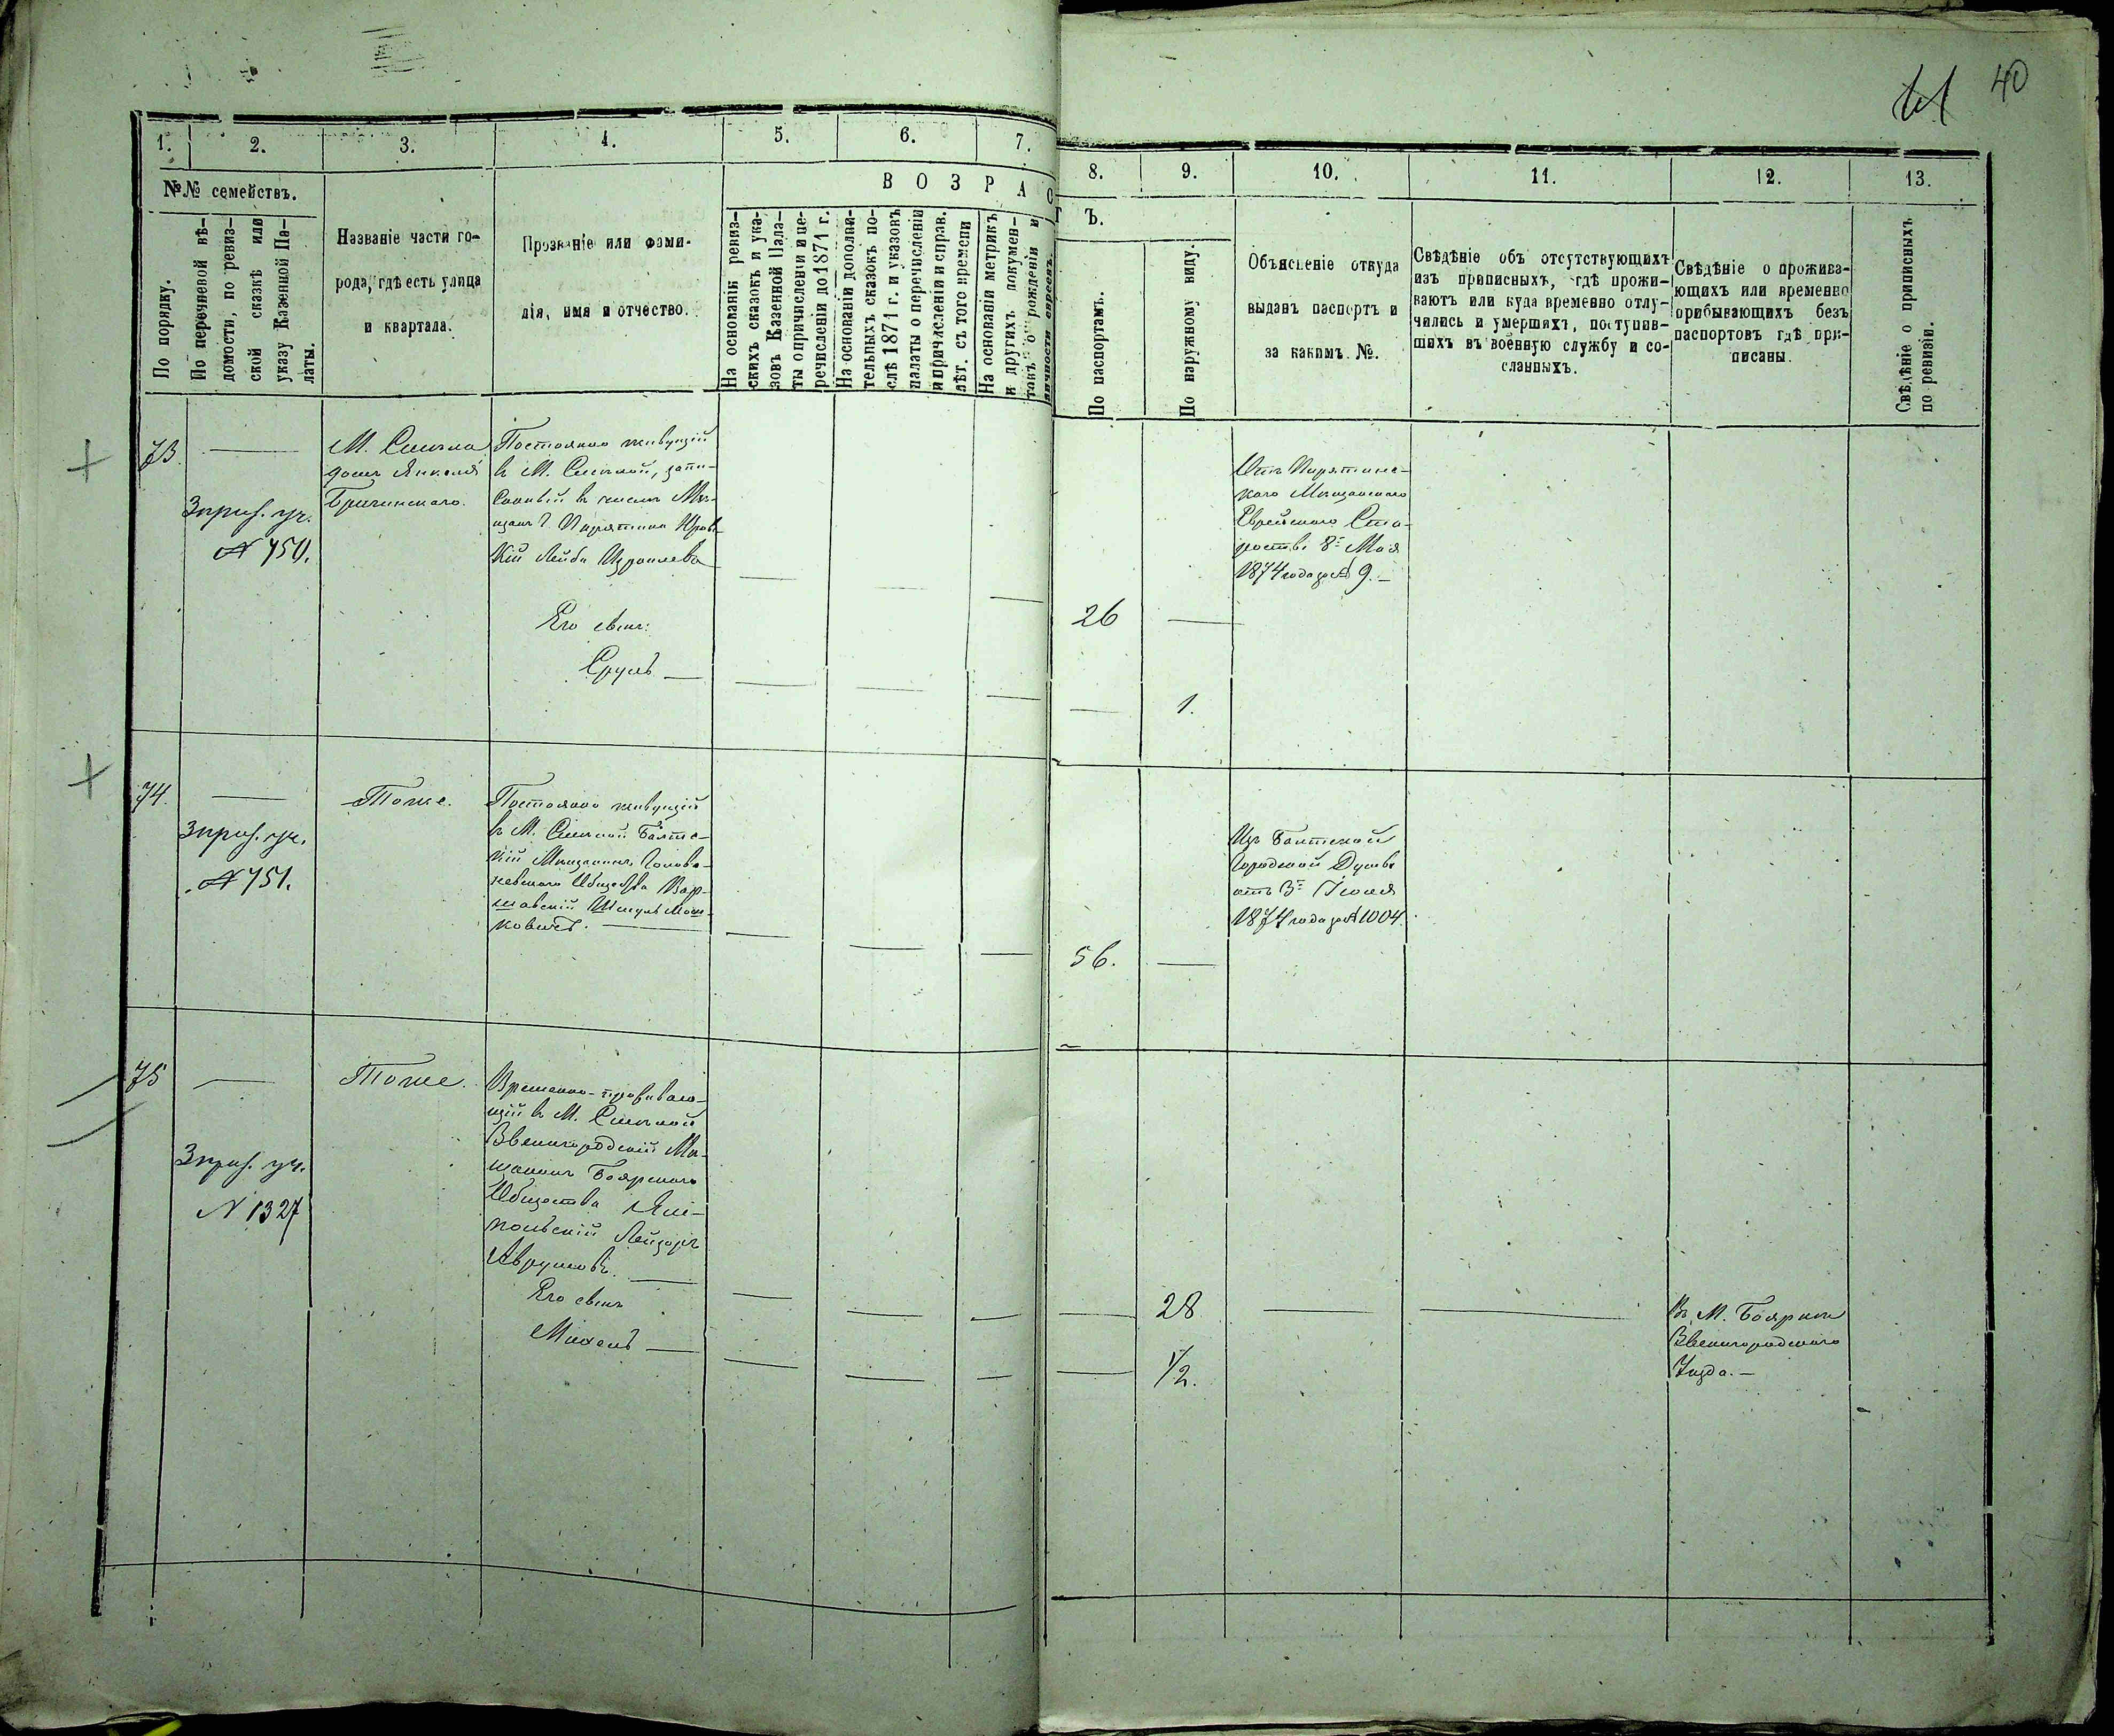 40
1. 2. 3. 4. 5. 6. 7. 8. 9. 10. 11. 12. 13.
№№ семействъ.
По порядку.
По перечневой вѣ-
домости, по ревиз-
ской сказкѣ или
указу Казенной Па-
латы.
Названіе части го-
рода, гдѣ есть улица
и квартала.
Прозваніе или фами-
лія, имя и отчество.
ВОЗРАСТЪ.
На основаніи ревиз-
скихъ сказокъ и ука-
зовъ Казенной Пала-
ты о причисленіи и пе-
речисленіи до 1871 г.
На основаніи дополни-
тельныхъ сказокъ по-
слѣ 1871 г. и указовъ
палаты о перечисленіи
и причисленіи и справ.
лѣт. съ того времени
На основаніи метрикъ
и другихъ докумен-
товъ о рожденіи и
личности евреевъ.
По паспортамъ.
По наружному виду.
Объясненіе откуда
выданъ паспортъ и
за какимъ №.
Свѣдѣніе объ отсутствующихъ
изъ приписныхъ, гдѣ прожи-
ваютъ или куда временно отлу-
чились и умершихъ, поступив-
шихъ въ военную службу и со-
сланныхъ.
Свѣдѣніе о прожива-
ющихъ или временно
прибывающихъ безъ
паспортовъ гдѣ при-
писаны.
Свѣдѣніе о приписныхъ
по ревизіи.
73
3 приз. уч.
№ 750.
М. Смѣла
домъ Янкеля
Постоянно живущій
въ М. Смѣлой, запи-
санный въ числѣ Мѣ-
щанъ г. Пирятина
Лейба Израилевъ
Его сынъ:
Сруль
26
1.
Отъ Пирятинс-
каго Мѣщанскаго
Еврейскаго Ста-
роства 8 Мая
1874 года за № 9.
74.
3 приз. уч.
№ 751.
Тоже.
Постоянно живущій
въ М. Смѣлой Балтс-
кій Мѣщанинъ Голова-
невскаго Общества Вар-
шавскій Шмуль Мош-
ковичъ.
56.
Изъ Балтской
Городской Думы
отъ 3 Іюля
1874 года за № 1004.
75
3 приз. уч.
№ 1327
Тоже.
Временно-проживаю-
щій въ М. Смѣлой
Звенигородскій Мѣ-
щанинъ Боярскаго
Общества Ям-
польскій Лейзоръ
Аврумовъ.
Его сынъ
Михель
28
1/2.
Въ М. Бояркѣ
Звенигородскаго
Уѣзда.